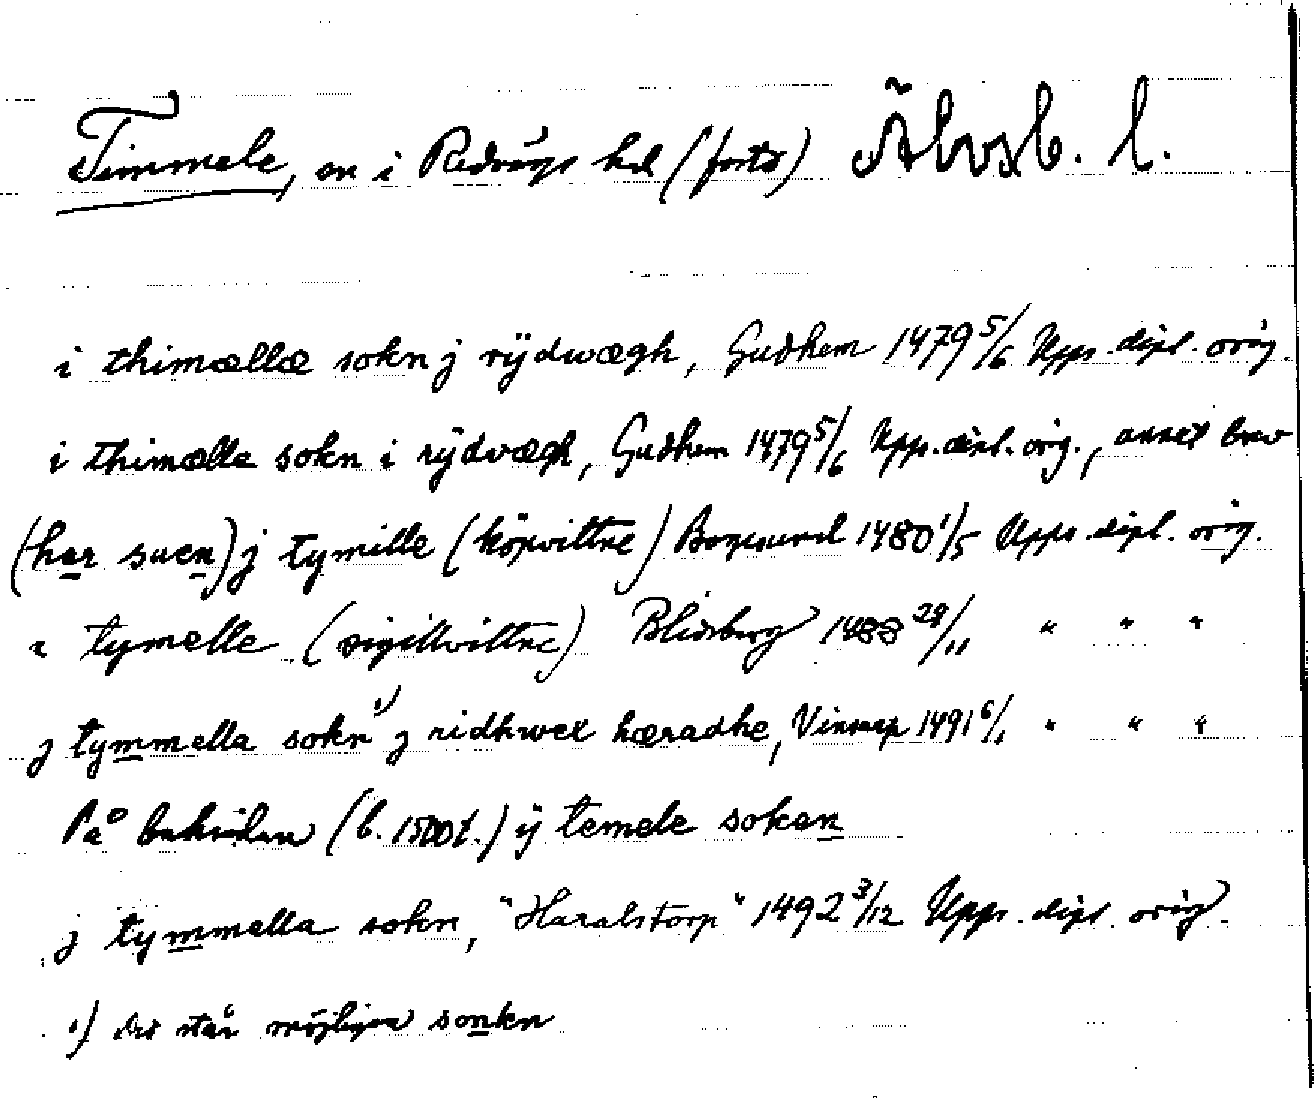 Timmele, sn i Redvägs hd (forts) Älvsb. l.
i thimællæ sokn j rÿdwægh, Gudhem 1479 5/6 Upps. dipl. orig.
i thimælle sokn i rÿdvægh, Gudhem 1479 5/6 Upps. dipl. orig., annat brev
(har suen) j tymille (köpvittne) Bogesund 1480 1/5 Upps dipl. orig.
i tymelle (sigillvittne) Blidsberg 1488 28/11 " " "
j tymmella sokn 1) j ridhwex hæradhe, Vinsarp 1491 6/1 " " "
På baksidan (b. 1500 t.) ÿ temele soken
j tymmella sokn, "Haralstorp" 1492 3/12 Upps. dipl. orig.
1) Det står möjligen sonkn